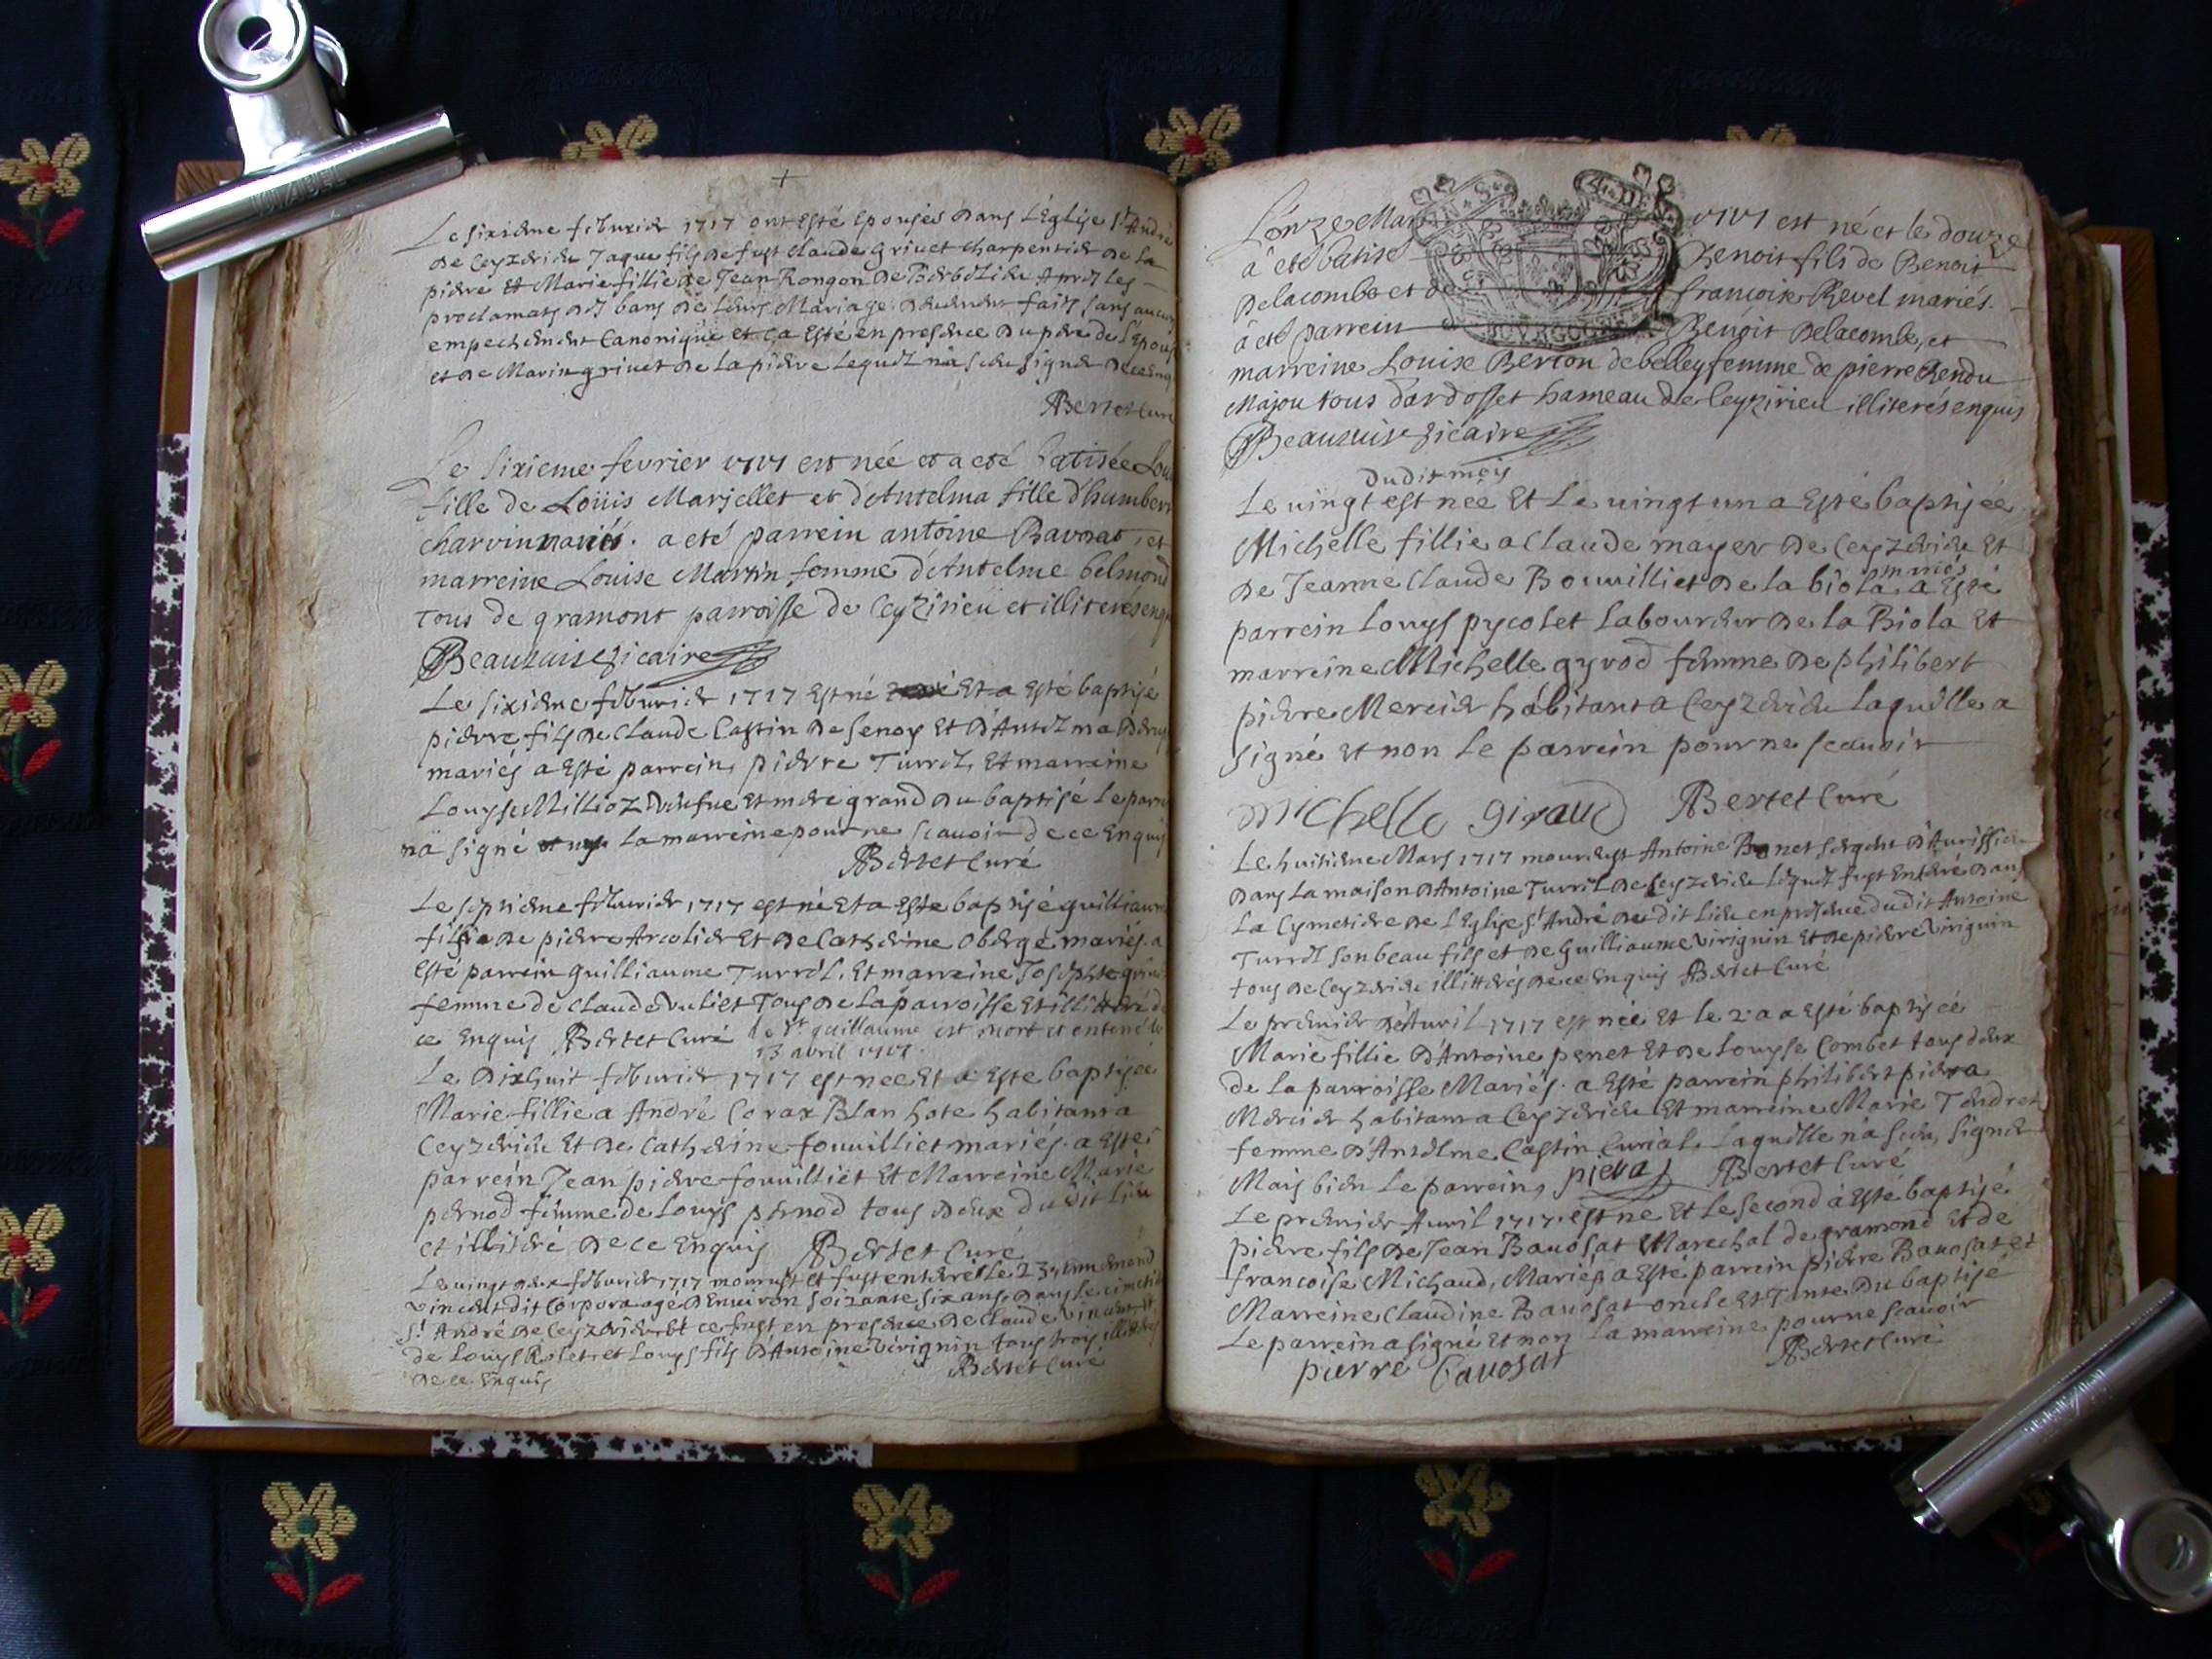 Le sixieme feburier 1717 ont esté epousés dans l'Eglise St André
de Ceyzerieu Jaque fils de fust Claude grivet charpentier de la
piere et Marie fillie de Jean Rongon de Aprez les
proclamats des bans de leurs Mariage deuement faits sans aucun
empechement Canonique et ça esté en presence du pere de l'Epouse
et de Marin grivet de la pierre Lequel na sceu signer de ce enq
Bertet Curé
Le sixieme fevrier 1717 est née et a eté batisée Lou
fille de Loüis Marjollet et d'Antelma fille d'humbert
charvin mariés. a eté parrein antoine Bavosat, et
marreine Louise Martin femme d'Antelme belmond
tous de gramont parroisse de Ceyzirieu et illiterés enq
Beauvaise vicaire
Le sixieme feburier 1717 est né et a esté baptisé
pierre fils de Claude Castin de Senoy et d'Antelma
mariés a esté parrein, pierre Turrel, et marreine
Louyse Millioz veufue et mere grand du baptisé Le parr
na signé la marreine pour ne scauoir de ce enquis
Bertet Curé
Le septieme feburier 1717 est né et a esté baptisé guilliaume
fils de piere Arcolier et de Catherine Obergé mariés. a
esté parrein guilliaume Turrel. Et marreine Josephte
femme de Claude Vuliet Tous de la parroisse et illitteré de
ce enquis Bertet Curé le dt guillaume est mort et enterré le
13 avril 1717.
Le dixhuit feburier 1717 est née et a esté baptisée
Marie fillie a André Corax Blan hote habitant a
Ceyzerieu et de Catherine fouuilliet mariés. a esté
parrein Jean piere fouuilliet et Marreine Marie
pernod femme de Louys pernod tous deux dudit lieu
et illiteré de ce enquis Bertet Curé
Le vingt deux feburier 1717 mourust et fust enterré le 23
vincent dit Corpora agé d'enuiron soixante six ans dans le cimetiere
St André de Ceyzerieu et ce fust en presence de Claude Vincent
de Louys Rolet et Louys fils d'Antoine Virignin tous trois illitterés
de ce enquis Bertet Curé
L'onze Mars 1717 est né et le douze
a eté batisé Benoit fils de Benoit
Delacombe et de françoise Revel mariés.
a eté parrein Benoit Delacombe, et
marreine Louise Berton de belley femme de pierre Rendu
Majou tous d'ardosset hameau de Ceyzirieu illiterés enquis
Beauvaise vicaire
dudit mois
Le uingt est née et Le uingt un a esté baptisée
Michelle fillie a Claude mayer de Ceyzerieu et
mariés
de Jeanne Claude Bouuilliet de la biola a esté
parrein Louys pycolet Laboureur de la Biola et
marreine Michelle gyrod femme de philibert
piere Mercier habitant a Ceyzerieu laquelle a
signé et non le parrein pour ne scauoir
michelle giraud Bertet Curé
Le huitieme Mars 1717 mourust Antoine sergent
Dans La maison d'Antoine Turrel de Ceyzerieu lequel fust enterré dans
La Cymetiere de l'Eglise St André dudit lieu en presence dudit Antoine
Turrel son beau fils et de Guilliaume Virignin et de piere Virignin
tous de Ceyzerieu illitterés de ce enquis Bertet Curé
Le premier d'Auril 1717 est née et le 2 a esté baptisée
Marie fillie d'Antoine penet et de Louyse Combet tous deux
de la parroisse Mariés. a esté parrein philibert piera
Mercier habitant a Ceyzerieu et marreine Marie Tendret
femme d'Antelme Castin Curial, laquelle n'a sceu, signer
Mais bien le parrein, piera Bertet Curé
Le premier Auril 1717. est né et le second a esté baptisé
piere fils de Jean Bauosat Marechal de gramond et de
francoise Michaud, Mariés a esté parrein pierre Bauosat et
Marreine Claudine Bauosat oncle et Tante du baptisé
Le parrein a signé et non la marreine pour ne scauoir
Bertet Curé
pierre bauosat